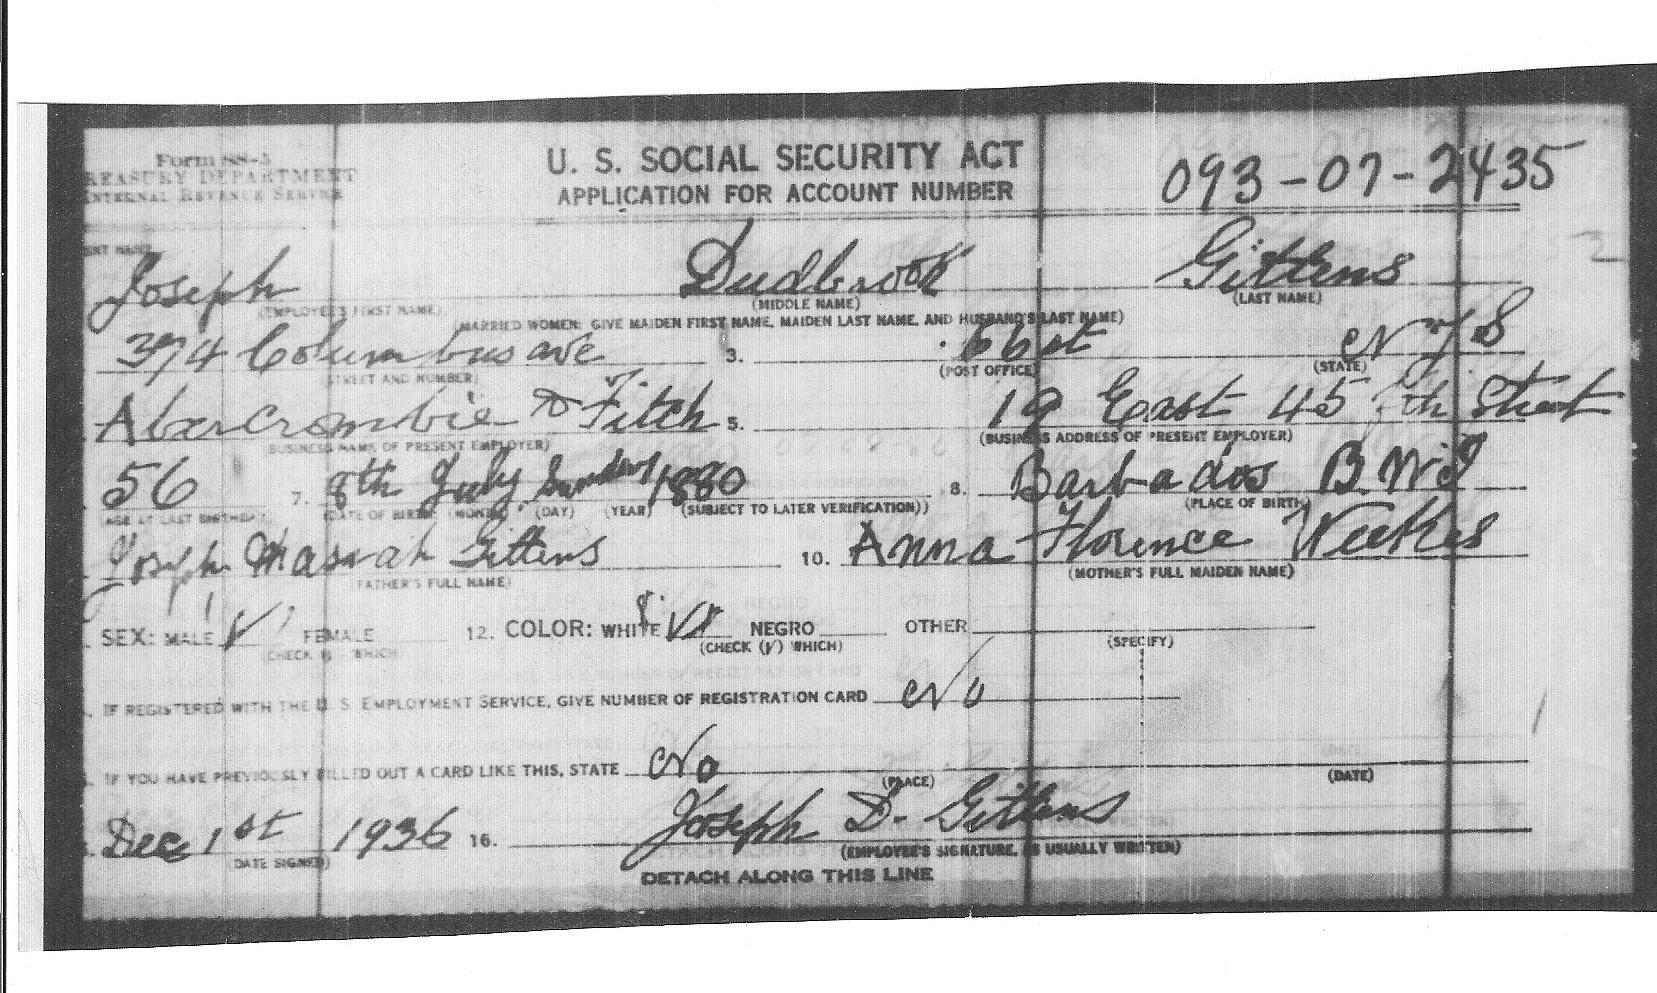 Form SS-5
TREASURY DEPARTMENT
INTERNAL REVENUE SERVICE
U. S. SOCIAL SECURITY ACT
APPLICATION FOR ACCOUNT NUMBER
093-07-2435
Joseph Dudbrook Gittens
(EMPLOYEE'S FIRST NAME) (MIDDLE NAME) (LAST NAME)
(MARRIED WOMEN: GIVE MAIDEN FIRST NAME, MAIDEN LAST NAME, AND HUSBAND'S LAST NAME)
374 Columbus ave 3. 66 st N
(STREET AND NUMBER) (POST OFFICE) (STATE)
Abercrombie & Fitch 5. 19 East 45 th Street
(BUSINESS NAME OF PRESENT EMPLOYER) (BUSINESS ADDRESS OF PRESENT EMPLOYER)
56 7. 8th July Sunday 1880 8. Barbados B.W.I
(AGE AT LAST BIRTHDAY) (DATE OF BIRTH: (MONTH) (DAY) (YEAR) (SUBJECT TO LATER VERIFICATION)) (PLACE OF BIRTH)
Joseph Gittens 10. Anna Florence Weekes
(FATHER'S FULL NAME) (MOTHER'S FULL MAIDEN NAME)
SEX: MALE √ FEMALE 12. COLOR: WHITE NEGRO OTHER
(CHECK (√) WHICH) (CHECK (√) WHICH) (SPECIFY)
IF REGISTERED WITH THE U. S. EMPLOYMENT SERVICE, GIVE NUMBER OF REGISTRATION CARD No
IF YOU HAVE PREVIOUSLY FILLED OUT A CARD LIKE THIS, STATE No
(PLACE) (DATE)
Dec 1st 1936 16. Joseph D. Gittens
(DATE SIGNED) (EMPLOYEE'S SIGNATURE, AS USUALLY WRITTEN)
DETACH ALONG THIS LINE